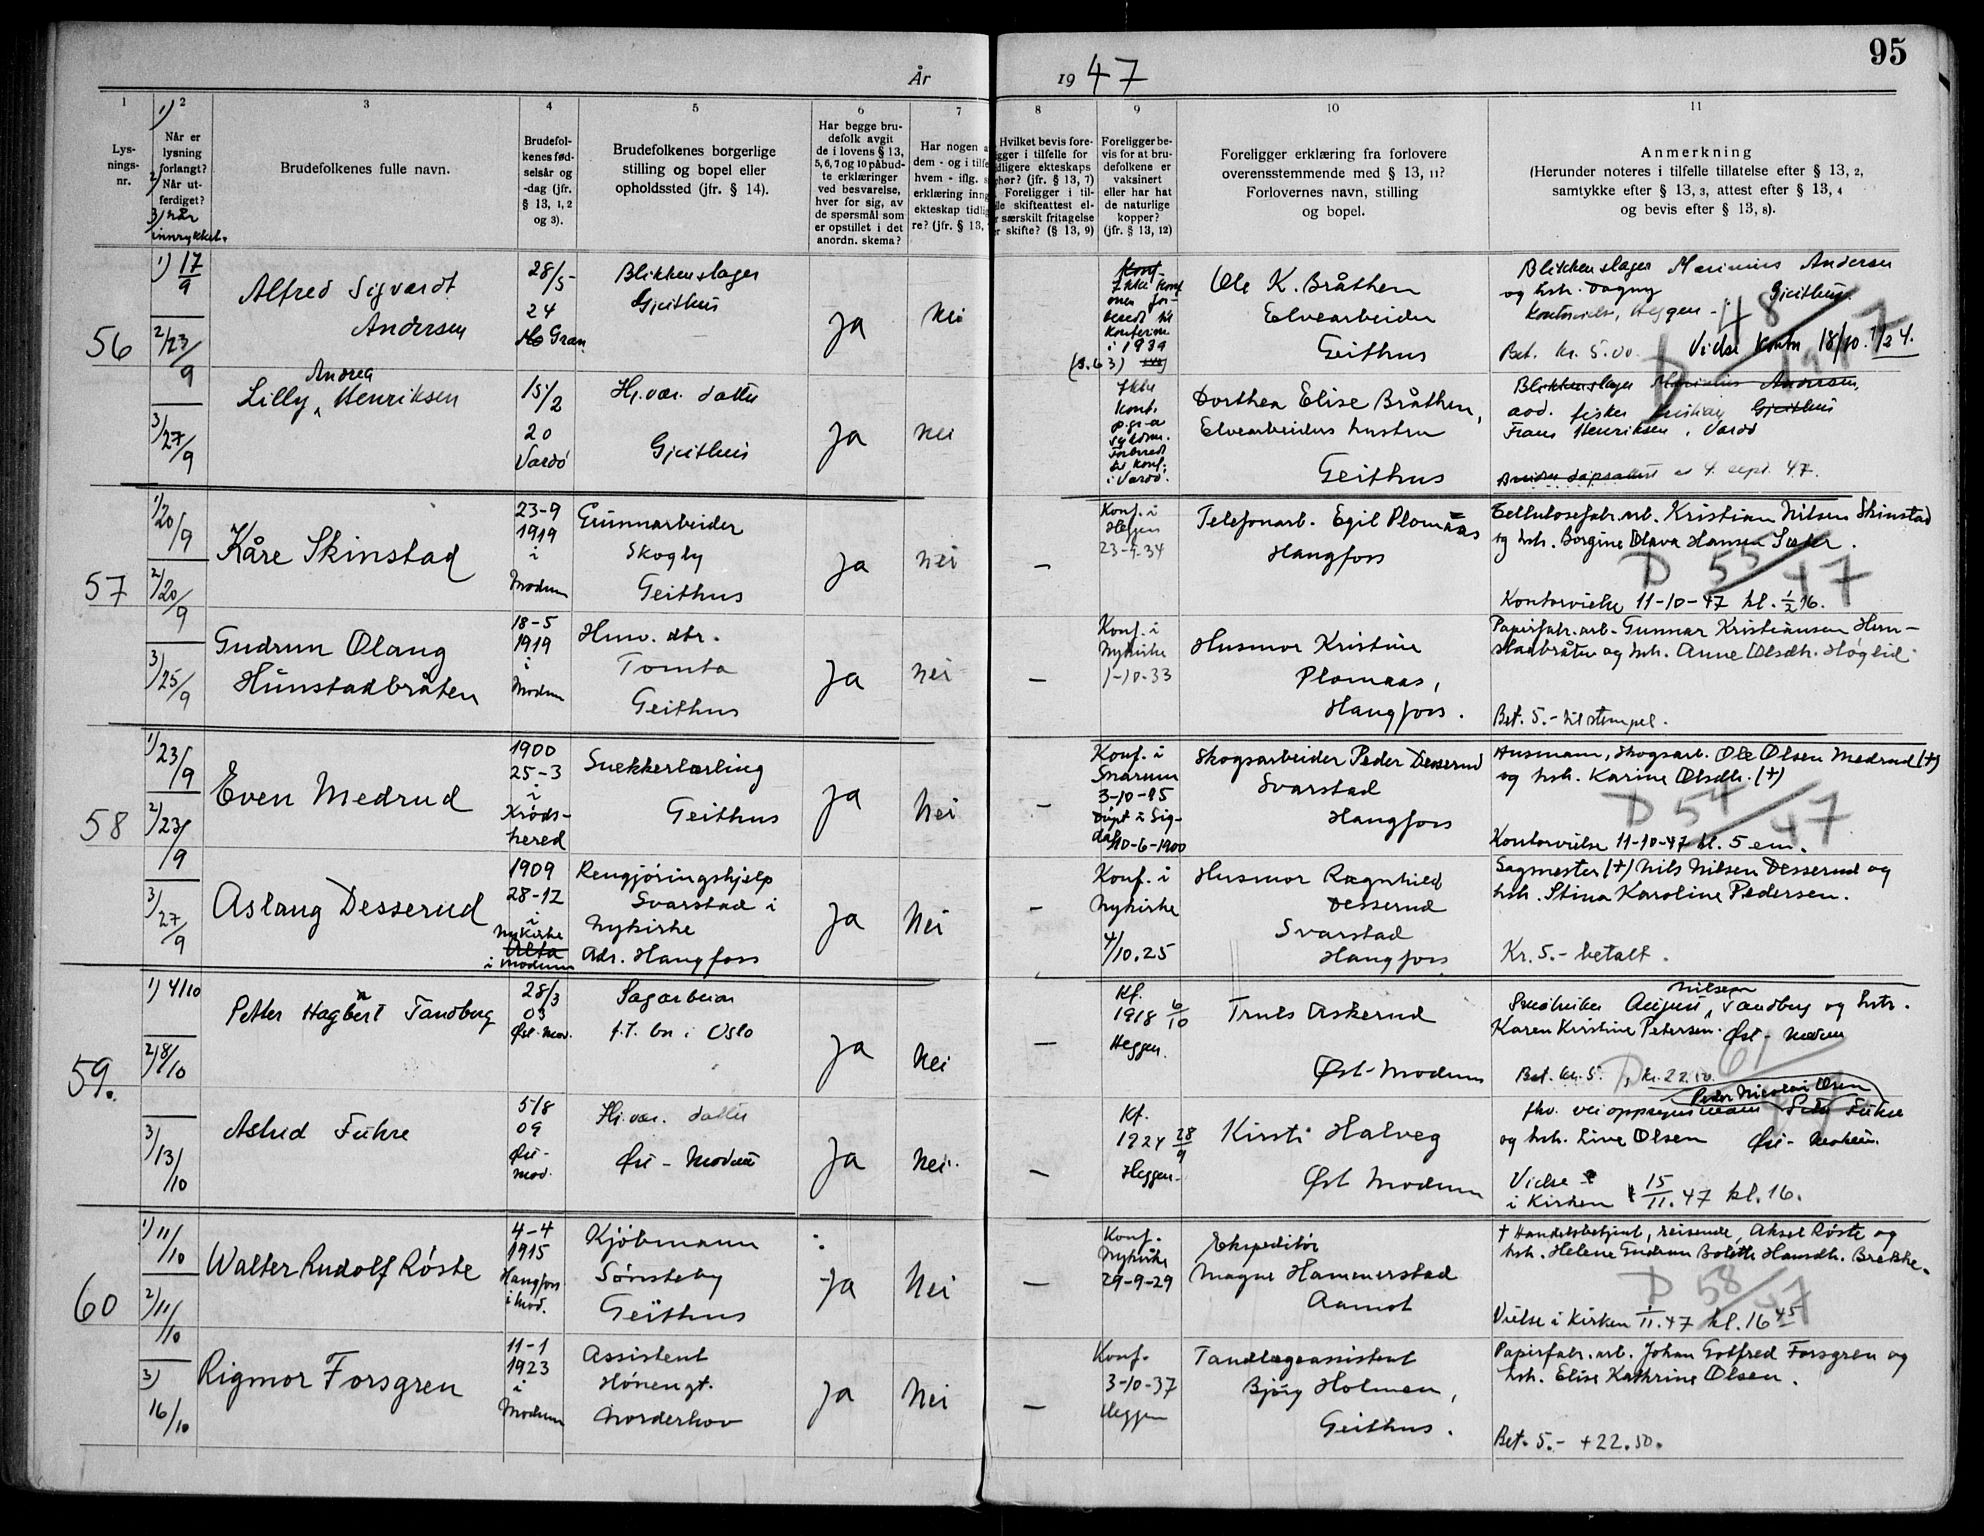 95
År 1947
1
2
3
4
5
6
7
8
9
10
11
Lys-
nings-
nr.
1)
Når er
lysning
forlangt?
2)
Når ut-
ferdiget?
3) når
innrykket.
Brudefolkenes fulle navn.
Brudefol-
kenes fød-
selsår og
-dag (jfr.
§ 13, 1, 2
og 3).
Brudefolkenes borgerlige
stilling og bopel eller
opholdssted (jfr. § 14).
Har begge bru-
defolk avgit
de i lovens § 13,
5, 6, 7 og 10 påbud-
te erklæringer
ved besvarelse,
hver for sig, av
de spørsmål som
er opstillet i det
anordn. skema?
Har nogen a
dem - og i tilfe
hvem - iflg. s
erklæring inng
ekteskap tidlig
re? (jfr. § 13,
Hvilket bevis fore-
igger i tilfelle for
idligere ekteskaps
phør? (jfr. § 13, 7)
Foreligger i til-
lle skifteattest el-
r særskilt fritagelse
r skifte? (§ 13, 9)
Foreligger be-
vis for at bru-
defolkene er
vaksinert
eller har hat
de naturlige
kopper?
(jfr. § 13, 12)
Foreligger erklæring fra forlovere
overensstemmende med § 13, 11?
Forlovernes navn, stilling
og bopel.
Anmerkning
(Herunder noteres i tilfelle tillatelse efter § 13, 2,
samtykke efter § 13, 3, attest efter § 13, 4
og bevis efter § 13, 8).
56
1) 17/9
2/23/9
3/27/9
Alfred Sigvardt
Andersen
28/5-
24
Gran
Blikkenslager
Gjeithus
Ja
Nei
Konf.
Ikke konf.
men for-
beredt til
konferm.
i 1939
(s.63)
Ole K. Bråthen
Elvearbeider
Geithus
Blikkenslager Marinius Andersen
og hstr. Dagny Gjeithus
Kontorvielse, Heggen
Bet. kr. 5.00. Vielse Kontor 18/10. 1/2 4.
Andrea
Lilly Henriksen
15/2
20
Vardö
Hj.vær. datter
Gjeithus
Ja
Nei
Ikke
konf.
p.gr.a
sykdom.
Forberedt
til konf.
i Vardö.
Dorthea Elise Bråthen,
Elvearbeiders hustru
Geithus
Blikkenslager Marinius Andersen,
avd. fisker Gjeithus
Frans Henriksen, Vardö
4. sept. 47.
57
1/20/9
2/20/9
3/25/9
Kåre Skinstad
23-9
1919
i
Modum
Grunnarbeider
Skogly
Geithus
Ja
Nei
–
Konf. i
Heggen
23-9-34
Telefonarb. Egil Plomaas
Haugfoss
Cellulosefabr.arb. Kristian Nilsen Skinstad
og hstr. Borgine Olava Hansen
D 55/47
Kontorvielse 11-10-47 kl. 1/2 16.
Gudrun Olaug
Hunstadbråten
18-5
1919
i
Modum
Husv. dtr.
Tomta
Geithus
Ja
Nei
–
Konf. i
Nykirke
1-10-33
Husmor Kristine
Plomaas,
Haugfoss.
Papirfabr.arb. Gunnar Kristiansen Hun-
stadbråten og hstr. Anne Olsdtr. Høglid
Bet. 5.- til stempel.
58
1/23/9
2/23/9
3/27/9
Even Medrud
1900
25-3
i
Kröds-
hered
Snekkerlærling
Geithus
Ja
Nei
–
Konf. i
Snarum
3-10-15
Døpt i Sig-
dal 10-6-1900
Skogsarbeider Peder Desserud
Svarstad
Haugfoss
Husmann, skogsarb. Ole Olsen Medrud (+)
og hstr. Karine Olsdtr. (+)
D 54/47
Kontorvielse 11-10-47 kl. 5 em.
Aslaug Desserud
1909
28-12
i
Nykirke
Alta
i Modum
Rengjøringshjelp
Svarstad i
Nykirke
Adr. Haugfoss
Ja
Nei
–
Konf. i
Nykirke
4/10.25
Husmor Ragnhild
Desserud
Svarstad
Haugfoss
Sagmester (+) Nils Nilsen Desserud og
hstr. Stina Karoline Pedersen.
Kr. 5.- betalt.
59.
1) 4/10
2) 8/10
3/13/10
Petter Hagbart Tandberg
28/3
03
Øst-Mod.
Sagarbeider
f.t. bo i Oslo
Ja
Nei
–
Kf.
1918 6/10
Heggen.
Truls Askerud
Øst-Modum
Nilsen
August Tandberg og hstr.
Karen Kristine Petersen. Øst-Modum
D 61/47
Bet. kr. 5., kr. 22.50.
Astrid Fuhre
5/8
09
Øst-
Mod.
Hj.vær. datter
Øst-Modum
Ja
Nei.
–
Kf.
1924 28/9
Heggen.
Kirsti Halveg
Øst Modum
Peder Nicolai Olsen
fhv. veioppsynsmann Fuhre
og hstr. Live Olsen Øst-Modum.
Vielse
i Kirken 15/11.47 kl. 16.
60
1/11/10
2/11/10
3) 16/10
Walter Rudolf Röste
4-4
1915
Haugfoss
i Mod.
Kjöbmann
Sönsteby
Geithus
Ja
Nei
–
Konf.
Nykirke
29-9-29
Ekspeditör
Magne Hammerstad
Aamot
+ Handelsbetjent, reisende, Aksel Röste og
hstr. Helene Gudrun Bolette Hansdtr. Brekke.
D 58/47
Vielse i Kirken 1/11.47 kl. 16 45
Rigmor Forsgren
11-1
1923
i
Modum
Assistent
Hönengt.
Norderhov
Ja
Nei
–
Konf.
3-10-37
Heggen
Tandlægeassistent
Bjørg Holmen,
Geithus.
Papirfabr.arb. Johan Gotfred Forsgren og
hstr. Elise Kathrine Olsen.
Bet. 5.- + 22.50.